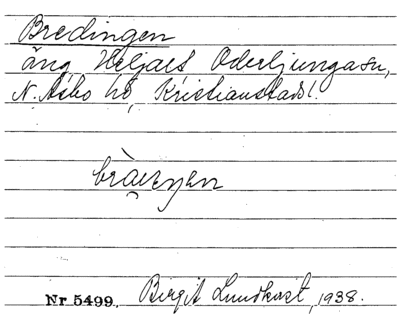 Bredingen
äng, Heljaes Oderljungasn,
N. Åsbo hd, Kristianstads l.
Nr 5499. Birgit Lundkvist, 1938.